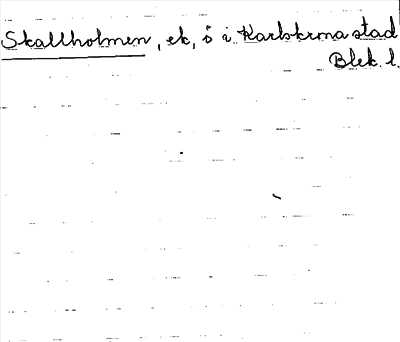 Skallholmen, ek, ö i Karlskrona stad
Blek. l.